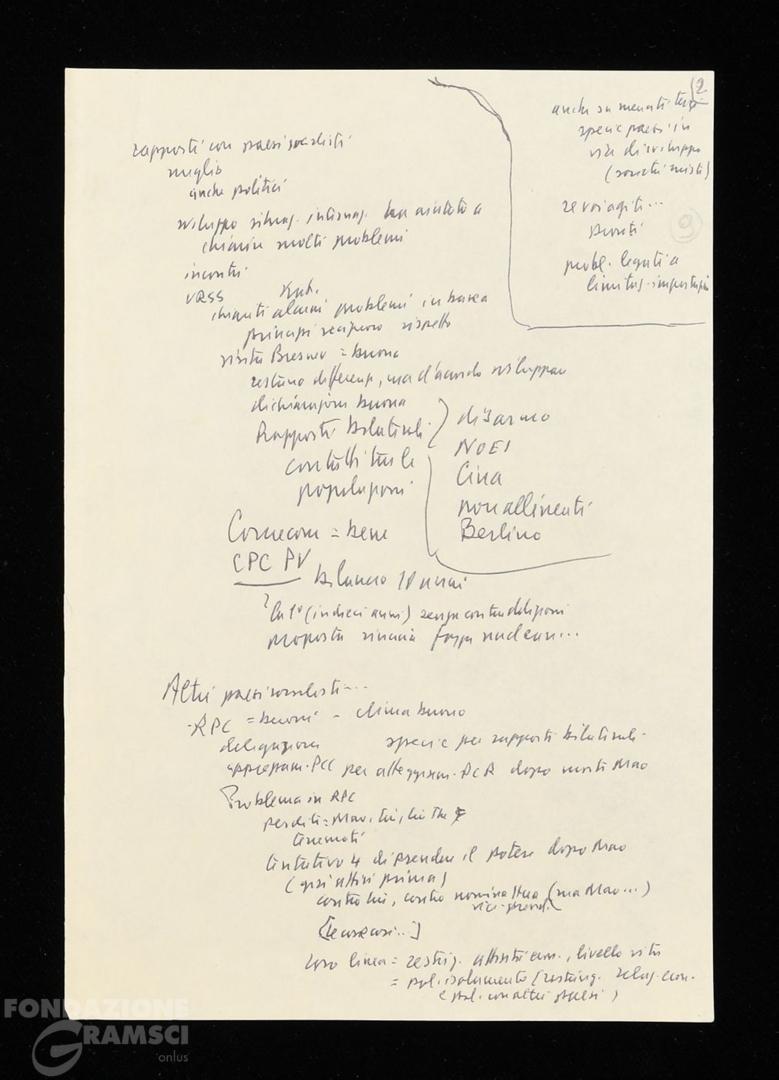 2
anche su mercati terzi
specie paesi in
via di sviluppo
(società miste)
buoni
probl. legati a
limitaz. importazioni
9
rapporti con paesi socialisti
meglio
anche politici
sviluppo situaz. internaz. ha aiutato a
chiarire molti problemi
incontri
URSS
chiariti alcuni problemi in base a
principi reciproco rispetto
visita Breznev = buona
restano differenze, ma d'accordo sviluppare
dichiarazione buona
Rapporti bilaterali
contatti tra le
popolazioni
disarmo
NOEI
Cina
non allineati
Berlino
Comecon = bene
CPC PV bilancio
(in dieci anni) senza contraddizioni
proposta rinuncia forza nucleare...
Altri paesi socialisti...
- RPC = buoni - clima buono
delegazioni specie per rapporti bilaterali
apprezzam. PCC per atteggiam. PCR dopo morte Mao
Problema in RPC
perdite = Mao,
terremoti
tentativo 4 di prendere il potere dopo Mao
(già attivi prima)
contro lui, contro nomina Hua (ma Mao...)
vice-presid.
loro linea = restrig. attività econ., livello vita
= pol. isolamento (restring. relaz. econ.
e pol. con altri paesi)
FONDAZIONE
GRAMSCI
onlus